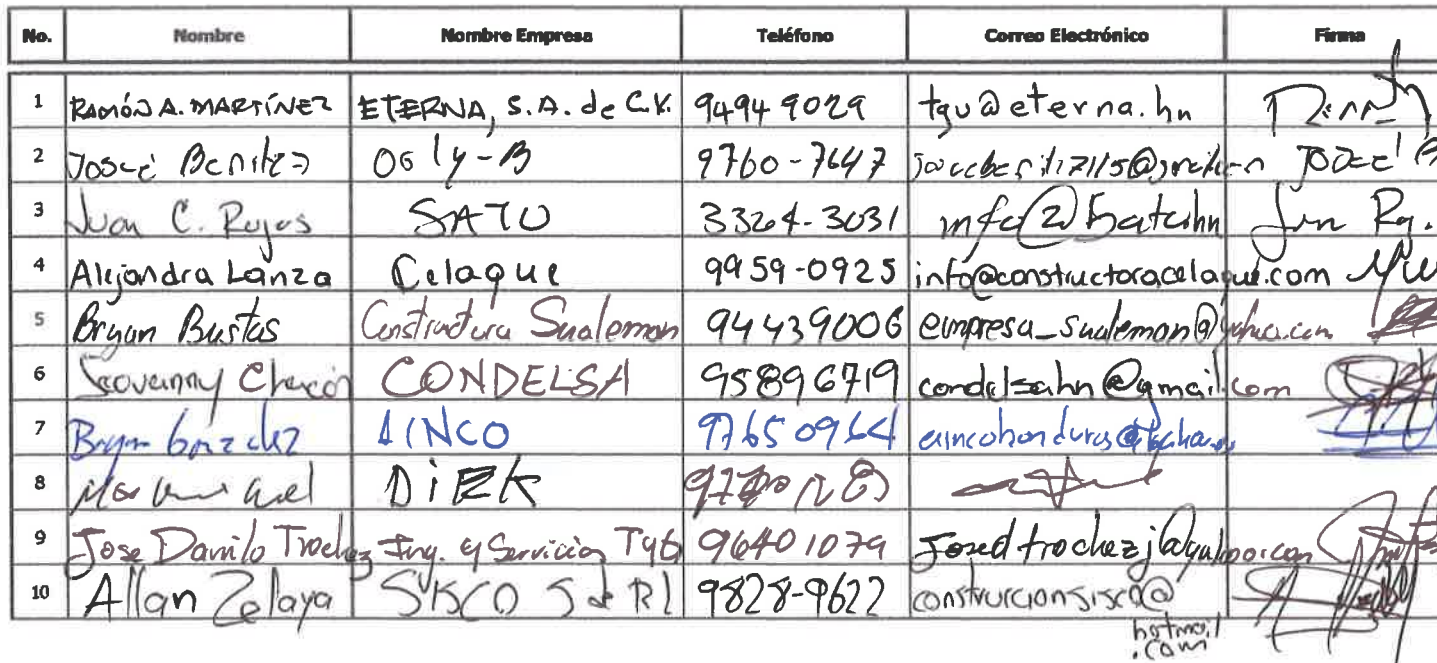 No. Nombre Nombre Empresa Teléfono Correo Electrónico Firma
1 RAMÓN A. MARTÍNEZ ETERNA, S.A. de C.V. 9494 9029 tgu@eterna.hn
2 Josué Benitez 9760-7647
3 Juan C. Rojas SATO 3364-3031
4 Alejandra Lanza Celaque 9959-0925 info@constructoracelaque.com
5 Bryan Bustos Constructora Sualeman 94439006 empresa_sualeman@yahoo.com
6 CONDELSA 95896719 condelsahn@gmail.com
7 AINCO 97650964
8 DIEK
9 Jose Danilo Trochez Ing. y Servicios 96401079 Josedtrochezj@yahoo.com
10 Allan Zelaya S de Rl 9828-9622 construccionsisco@
hotmail
.com